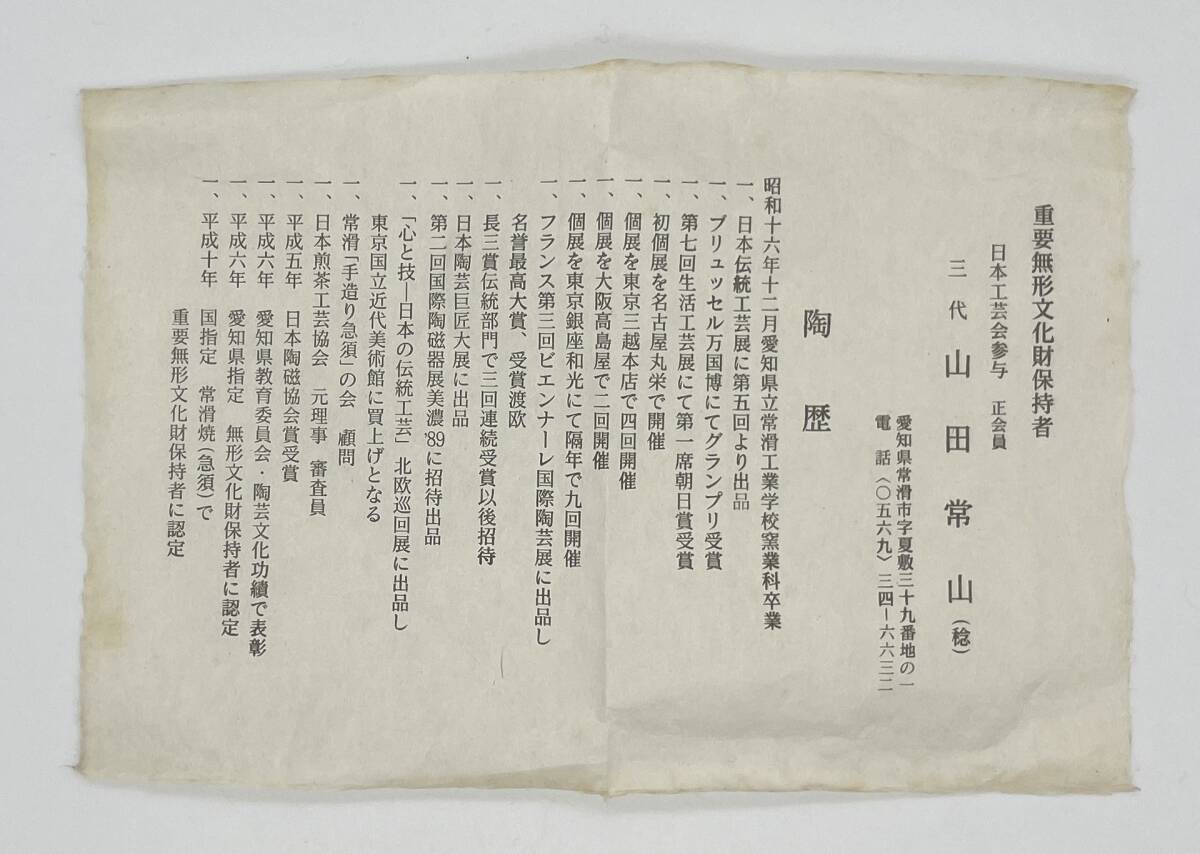 重要無形文化財保持者
日本工芸会参与　正会員
三代　山田常山（稔）
愛知県常滑市字夏敷三十九番地の一
電話〈〇五六九〉三四−六六三二
陶歴
昭和十六年十二月愛知県立常滑工業学校窯業科卒業
一、日本伝統工芸展に第五回より出品
一、ブリュッセル万国博にてグランプリ受賞
一、第七回生活工芸展にて第一席朝日賞受賞
一、初個展を名古屋丸栄で開催
一、個展を東京三越本店で四回開催
一、個展を大阪高島屋で二回開催
一、個展を東京銀座和光にて隔年で九回開催
一、フランス第三回ビエンナーレ国際陶芸展に出品し
名誉最高大賞、受賞渡欧
一、長三賞伝統部門で三回連続受賞以後招待
一、日本陶芸巨匠大展に出品
一、第二回国際陶磁器展美濃'89に招待出品
一、「心と技−日本の伝統工芸」北欧巡回展に出品し
東京国立近代美術館に買上げとなる
一、常滑「手造り急須」の会　顧問
一、日本煎茶工芸協会　元理事　審査員
一、平成五年　日本陶磁協会賞受賞
一、平成六年　愛知県教育委員会・陶芸文化功績で表彰
一、平成六年　愛知県指定　無形文化財保持者に認定
一、平成十年　国指定　常滑焼（急須）で
重要無形文化財保持者に認定